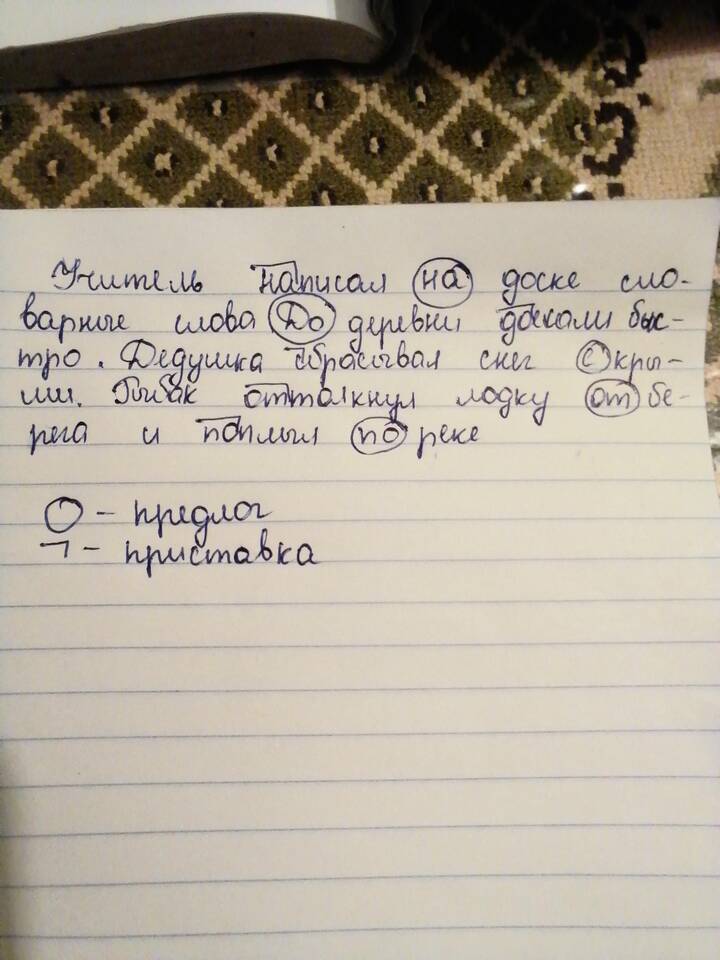 Учитель написал на доске сло-
варные слова До деревни доехали быс-
тро. Дедушка сбрасывал снег с кры-
ши. Рыбак оттолкнул лодку от бе-
рега и поплыл по реке
О - предлог
¬ - приставка